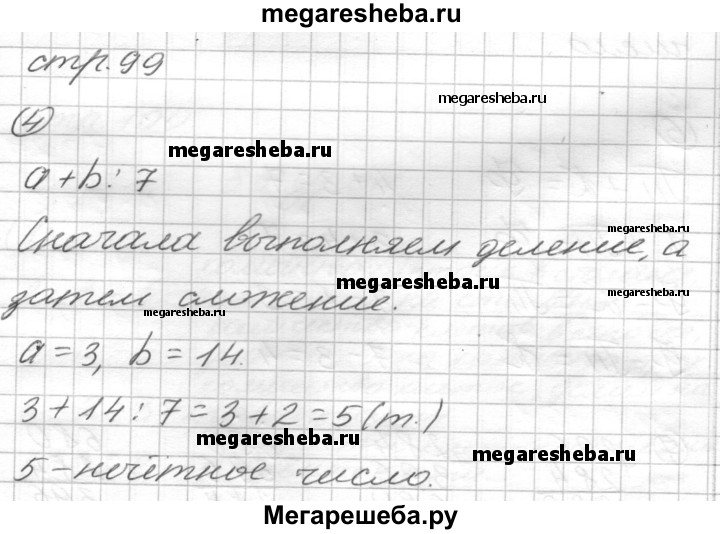 megaresheba.ru
стр. 99
megaresheba.ru
④
megaresheba.ru
a + b : 7
megaresheba.ru
Сначала выполняем деление, а
megaresheba.ru
megaresheba.ru
затем сложение.
megaresheba.ru
a = 3, b = 14.
3 + 14 : 7 = 3 + 2 = 5 (т.)
megaresheba.ru
megaresheba.ru
5 – нечётное число.
Мегарешеба.ру